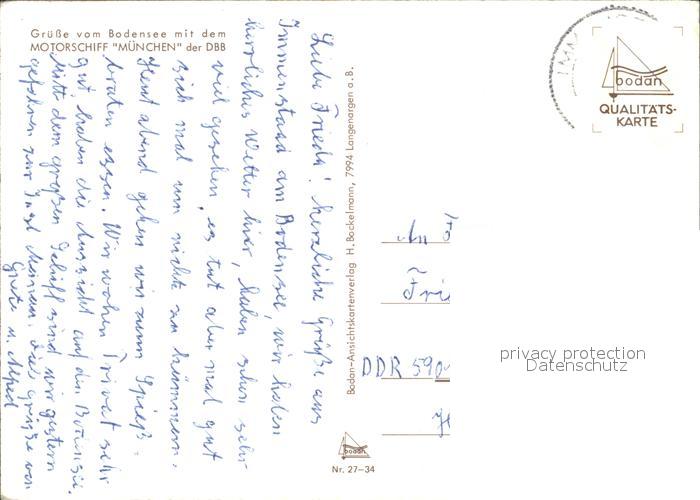 Grüße vom Bodensee mit dem
MOTORSCHIFF "MÜNCHEN" der DBB
Liebe Friedl! herzliche Grüße aus
Immenstaad am Bodensee, wir haben
herrliches Wetter hier, haben schon sehr
viel gesehen, es tut aber mal gut
sich mal um nichts zu kümmern.
Heut abend gehen wir zum Spieß-
braten essen. Wir wohnen Privat sehr
gut, haben die Aussicht auf den Bodensee.
Mitt dem großen Schiff sind wir gestern
gefahren zur Insel Mainau. Viele Grüße von
Grete u. Alfred
Bodan-Ansichtskartenverlag H. Bockelmann, 7994 Langenargen a. B.
bodan
QUALITÄTS-
KARTE
An
Fri
DDR 590
privacy protection
Datenschutz
bodan
Nr. 27-34